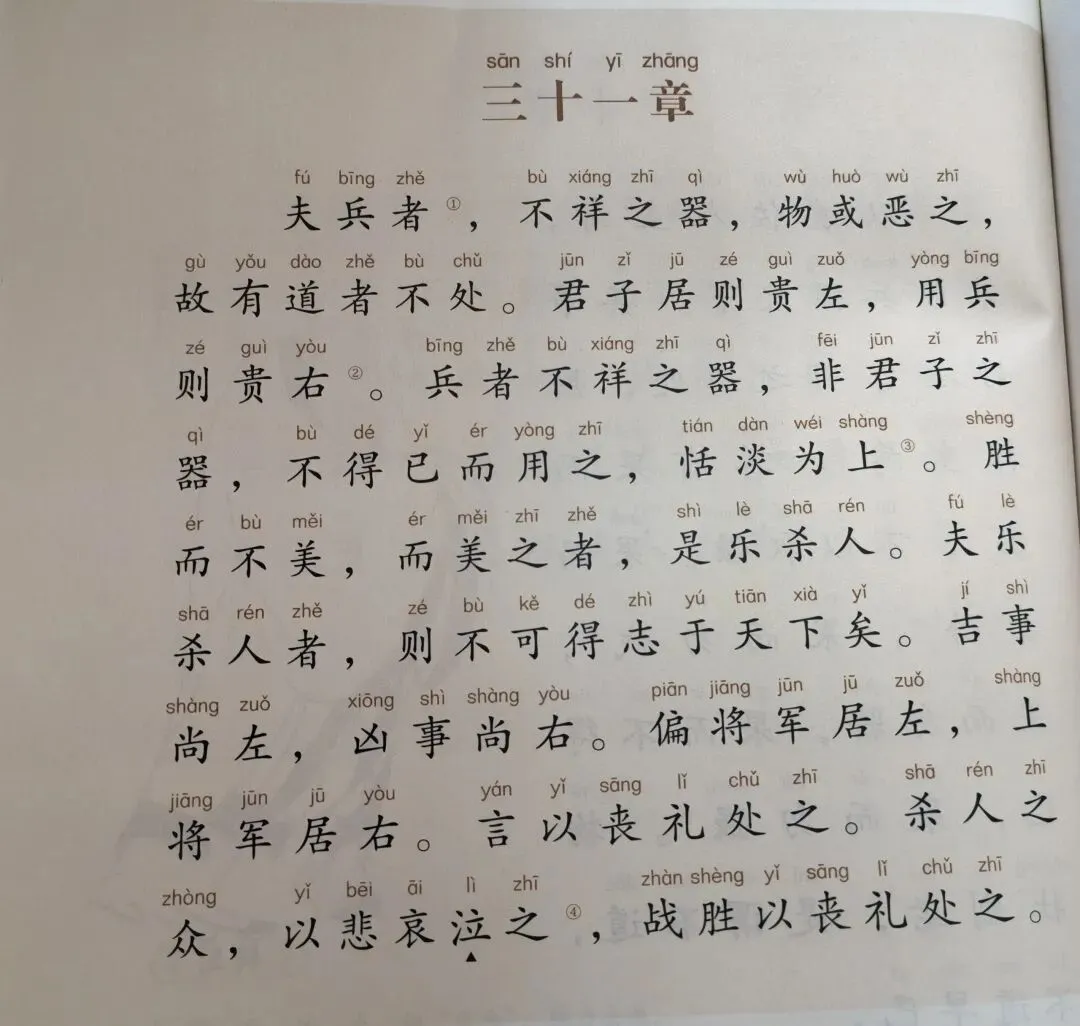 sān shí yī zhāng
三十一章
fú bīng zhě bù xiáng zhī qì wù huò wù zhī
夫兵者①，不祥之器，物或恶之，
gù yǒu dào zhě bù chǔ jūn zǐ jū zé guì zuǒ yòng bīng
故有道者不处。君子居则贵左，用兵
zé guì yòu bīng zhě bù xiáng zhī qì fēi jūn zǐ zhī
则贵右②。兵者不祥之器，非君子之
qì bù dé yǐ ér yòng zhī tián dàn wéi shàng shèng
器，不得已而用之，恬淡为上③。胜
ér bù měi ér měi zhī zhě shì lè shā rén fú lè
而不美，而美之者，是乐杀人。夫乐
shā rén zhě zé bù kě dé zhì yú tiān xià yǐ jí shì
杀人者，则不可得志于天下矣。吉事
shàng zuǒ xiōng shì shàng yòu piān jiāng jūn jū zuǒ shàng
尚左，凶事尚右。偏将军居左，上
jiāng jūn jū yòu yán yǐ sāng lǐ chǔ zhī shā rén zhī
将军居右。言以丧礼处之。杀人之
zhòng yǐ bēi āi lì zhī zhàn shèng yǐ sāng lǐ chǔ zhī
众，以悲哀泣之④，战胜以丧礼处之。
▲